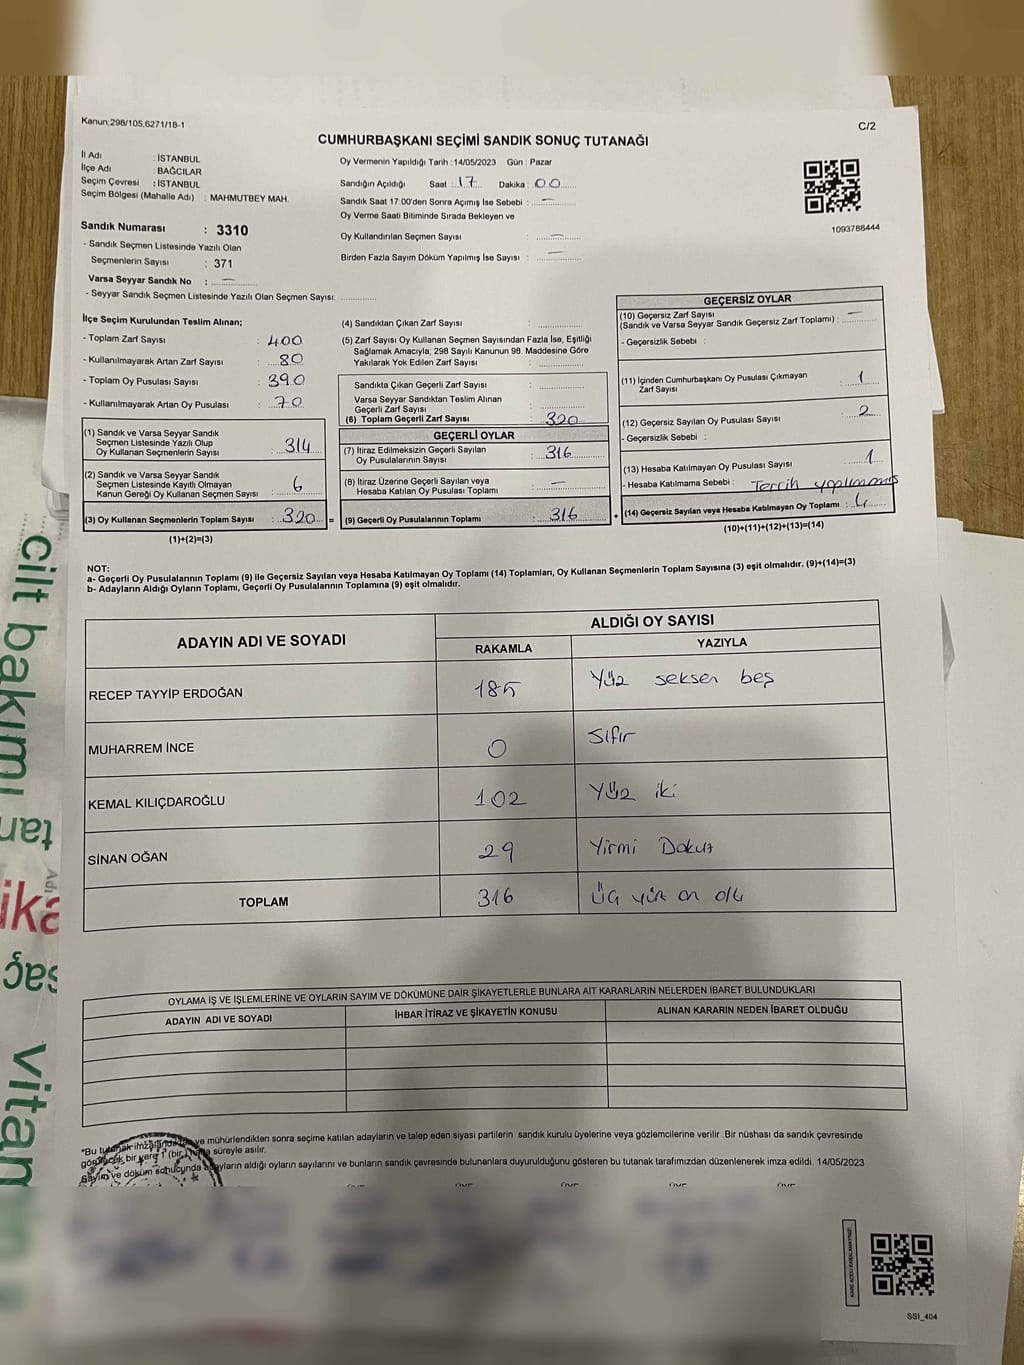 Kanun;298/105,6271/18-1
C/2
CUMHURBAŞKANI SEÇİMİ SANDIK SONUÇ TUTANAĞI
İl Adı : İSTANBUL
İlçe Adı : BAĞCILAR
Seçim Çevresi : İSTANBUL
Seçim Bölgesi (Mahalle Adı) : MAHMUTBEY MAH.
Oy Vermenin Yapıldığı Tarih : 14/05/2023 Gün : Pazar
Sandığın Açıldığı Saat : 17 Dakika : 00
Sandık Saat 17:00'den Sonra Açımış İse Sebebi : —
Oy Verme Saati Bitiminde Sırada Bekleyen ve
Oy Kullandırılan Seçmen Sayısı : —
Birden Fazla Sayım Döküm Yapılmış İse Sayısı : —
1093786444
Sandık Numarası : 3310
- Sandık Seçmen Listesinde Yazılı Olan
Seçmenlerin Sayısı : 371
Varsa Seyyar Sandık No : —
- Seyyar Sandık Seçmen Listesinde Yazılı Olan Seçmen Sayısı:
İlçe Seçim Kurulundan Teslim Alınan;
- Toplam Zarf Sayısı : 400
- Kullanılmayarak Artan Zarf Sayısı : 80
- Toplam Oy Pusulası Sayısı : 390
- Kullanılmayarak Artan Oy Pusulası : 70
(1) Sandık ve Varsa Seyyar Sandık
Seçmen Listesinde Yazılı Olup
Oy Kullanan Seçmenlerin Sayısı : 314
(2) Sandık ve Varsa Seyyar Sandık
Seçmen Listesinde Kayıtlı Olmayan
Kanun Gereği Oy Kullanan Seçmen Sayısı : 6
(3) Oy Kullanan Seçmenlerin Toplam Sayısı : 320 =
(1)+(2)=(3)
(4) Sandıktan Çıkan Zarf Sayısı :
(5) Zarf Sayısı Oy Kullanan Seçmen Sayısından Fazla İse, Eşitliği
Sağlamak Amacıyla; 298 Sayılı Kanunun 98. Maddesine Göre
Yakılarak Yok Edilen Zarf Sayısı :
Sandıkta Çıkan Geçerli Zarf Sayısı :
Varsa Seyyar Sandıktan Teslim Alınan
Geçerli Zarf Sayısı :
(6) Toplam Geçerli Zarf Sayısı : 320
GEÇERLİ OYLAR
(7) İtiraz Edilmeksizin Geçerli Sayılan
Oy Pusulalarının Sayısı : 316
(8) İtiraz Üzerine Geçerli Sayılan veya
Hesaba Katılan Oy Pusulası Toplamı : —
(9) Geçerli Oy Pusulalarının Toplamı : 316 +
GEÇERSİZ OYLAR
(10) Geçersiz Zarf Sayısı
(Sandık ve Varsa Seyyar Sandık Geçersiz Zarf Toplamı) : —
- Geçersizlik Sebebi :
(11) İçinden Cumhurbaşkanı Oy Pusulası Çıkmayan
Zarf Sayısı : 1
(12) Geçersiz Sayılan Oy Pusulası Sayısı : 2
- Geçersizlik Sebebi :
(13) Hesaba Katılmayan Oy Pusulası Sayısı : 1
- Hesaba Katılmama Sebebi : Tercih yapılmamış
(14) Geçersiz Sayılan veya Hesaba Katılmayan Oy Toplamı : 4
(10)+(11)+(12)+(13)=(14)
NOT:
a- Geçerli Oy Pusulalarının Toplamı (9) ile Geçersiz Sayılan veya Hesaba Katılmayan Oy Toplamı (14) Toplamları, Oy Kullanan Seçmenlerin Toplam Sayısına (3) eşit olmalıdır. (9)+(14)=(3)
b- Adayların Aldığı Oyların Toplamı, Geçerli Oy Pusulalarının Toplamına (9) eşit olmalıdır.
ADAYIN ADI VE SOYADI
ALDIĞI OY SAYISI
RAKAMLA YAZIYLA
RECEP TAYYİP ERDOĞAN 185 Yüz seksen beş
MUHARREM İNCE 0 Sıfır
KEMAL KILIÇDAROĞLU 102 Yüz iki
SİNAN OĞAN 29 Yirmi Dokuz
TOPLAM 316 Üç yüz on altı
OYLAMA İŞ VE İŞLEMLERİNE VE OYLARIN SAYIM VE DÖKÜMÜNE DAİR ŞİKAYETLERLE BUNLARA AİT KARARLARIN NELERDEN İBARET BULUNDUKLARI
ADAYIN ADI VE SOYADI İHBAR İTİRAZ VE ŞİKAYETİN KONUSU ALINAN KARARIN NEDEN İBARET OLDUĞU
*Bu tutanak imzalandıktan ve mühürlendikten sonra seçime katılan adayların ve talep eden siyasi partilerin sandık kurulu üyelerine veya gözlemcilerine verilir. Bir nüshası da sandık çevresinde
görülecek bir yere 1 (bir) hafta süreyle asılır.
Sayım ve döküm sonucunda adayların aldığı oyların sayılarını ve bunların sandık çevresinde bulunanlara duyurulduğunu gösteren bu tutanak tarafımızdan düzenlenerek imza edildi. 14/05/2023
ÜYE ÜYE ÜYE ÜYE ÜYE
SSI_404
cilt bakımı
saç
vitamin